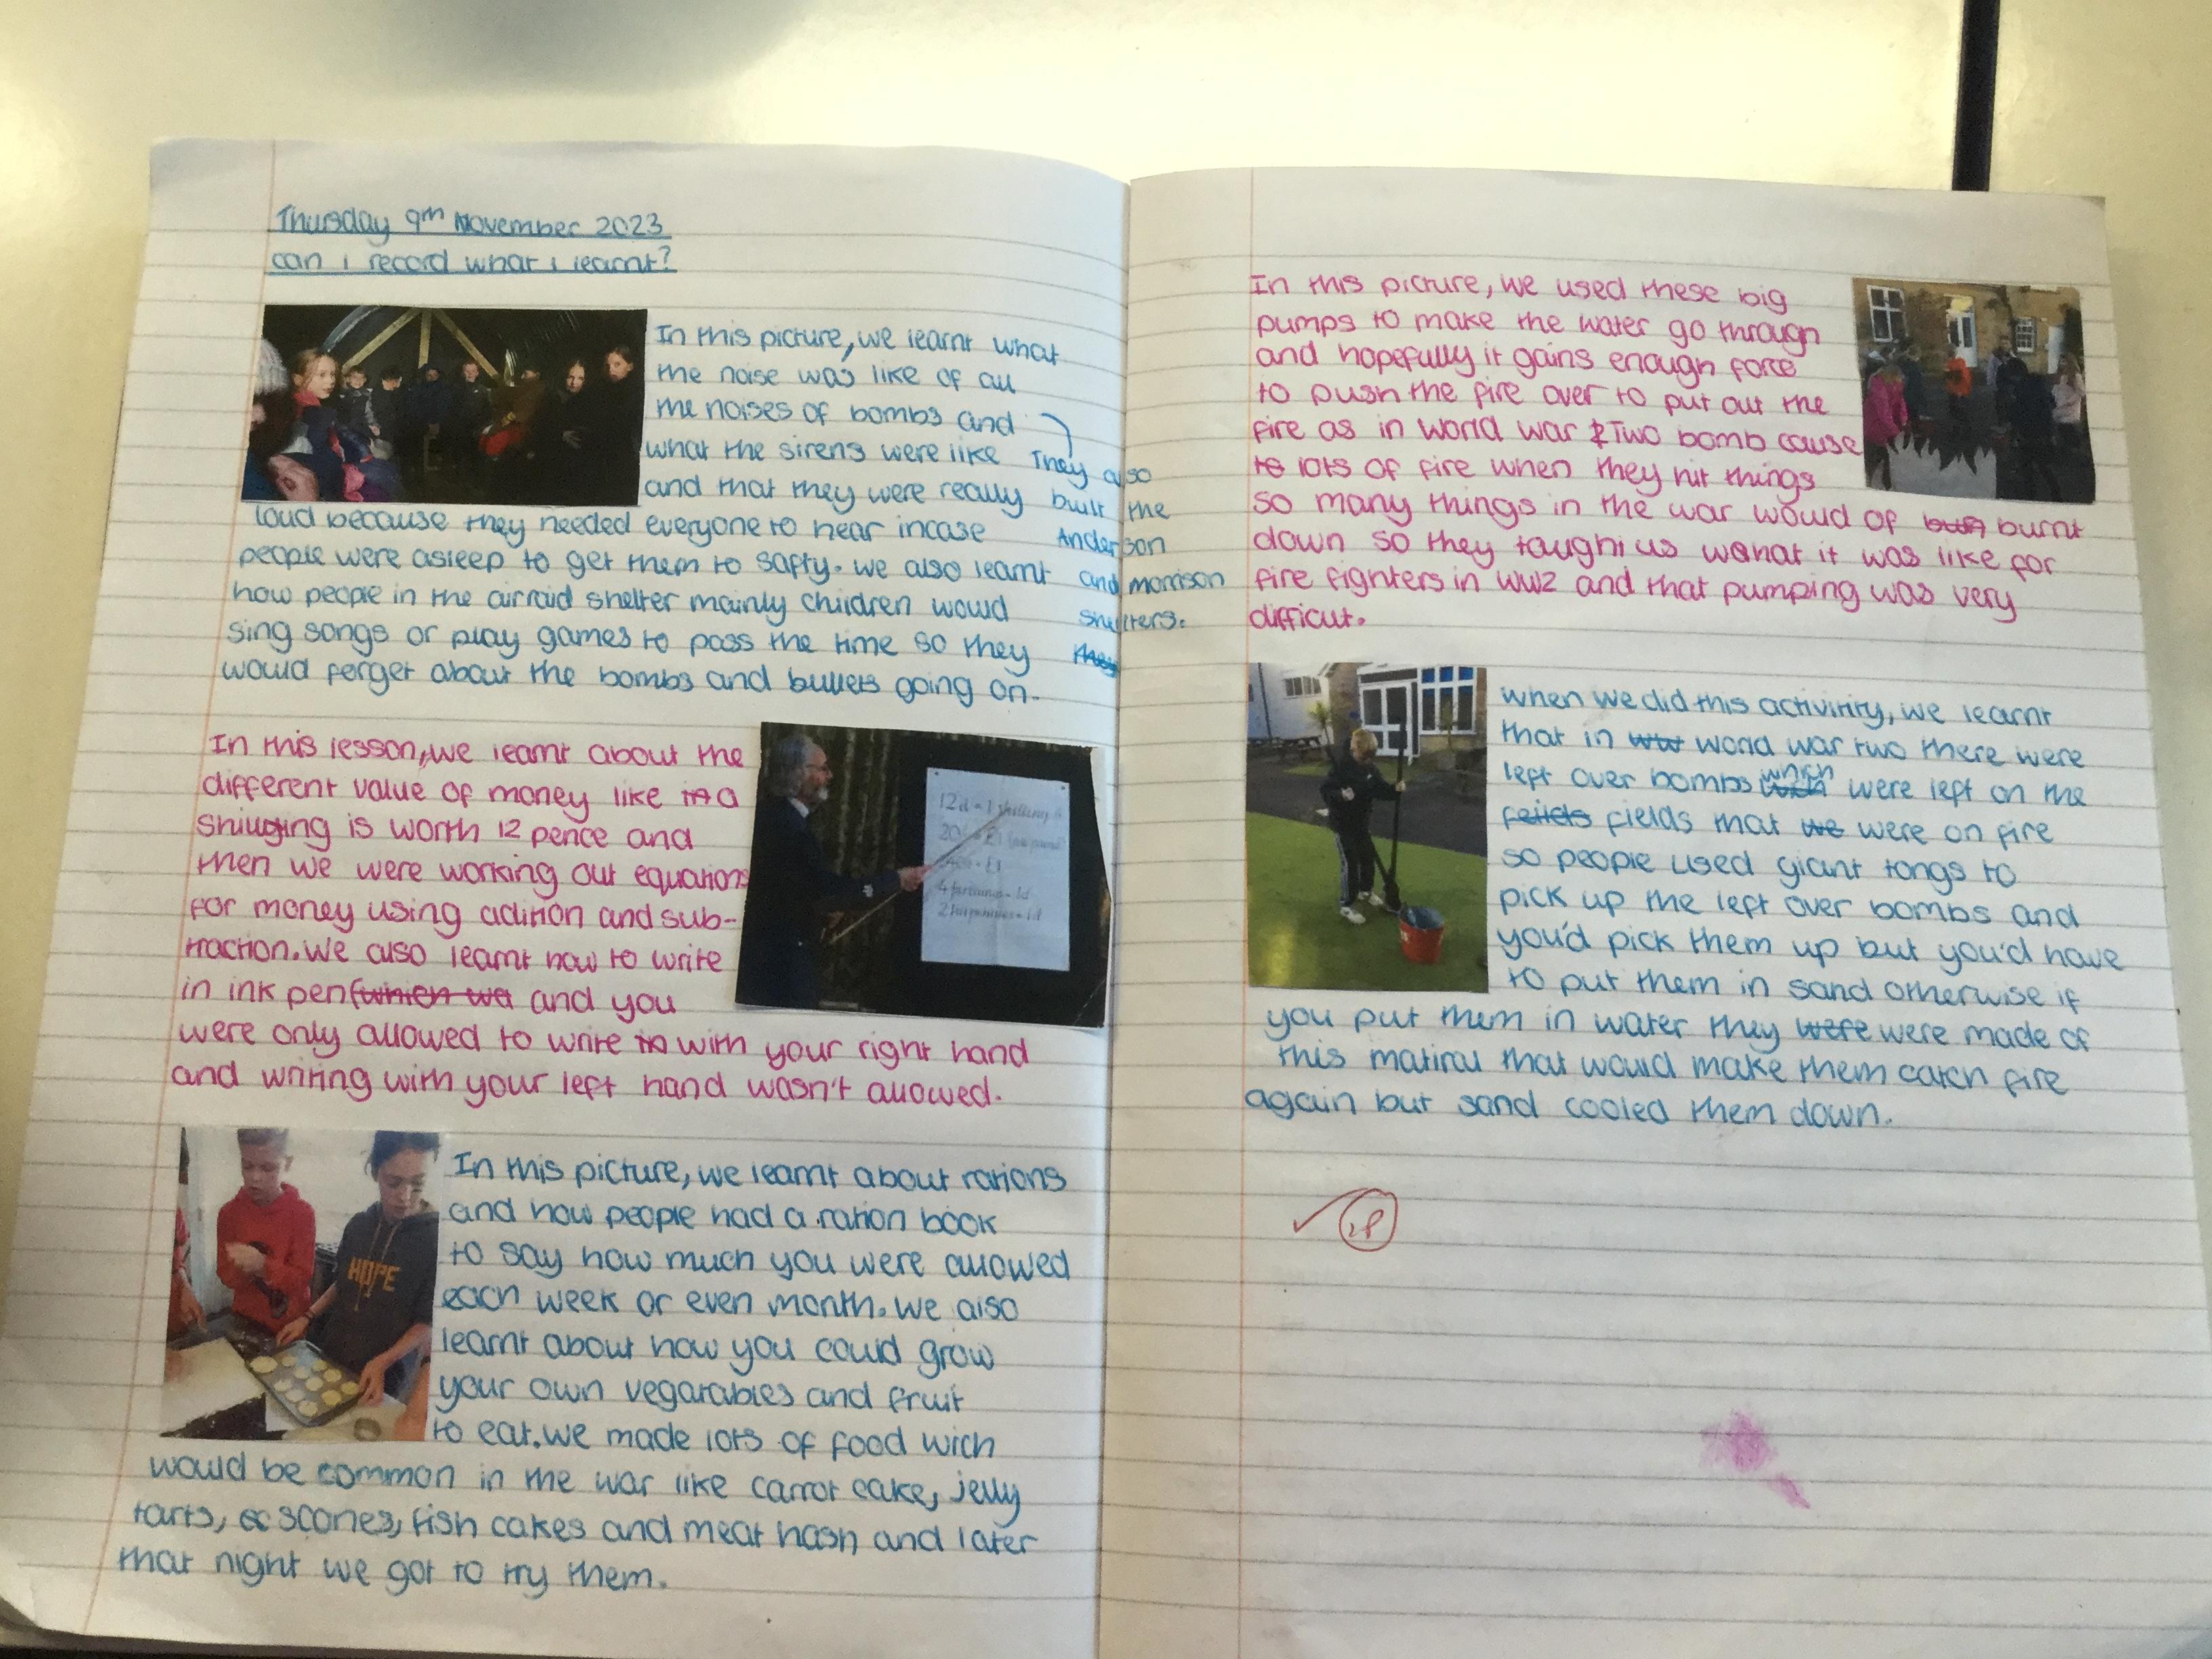 Thursday 9th November 2023
can i record what i learnt?
In this picture, we learnt what
the noise was like of all
the noises of bombs and
what the sirens were like
and that they were really
loud because they needed everyone to hear incase
people were asleep to get them to safty. we also learnt
how people in the air raid shelter mainly children would
sing songs or play games to pass the time so they
would forget about the bombs and bullets going on.
They also
built the
Anderson
and morrison
shelters.
they
In this lesson, we learnt about the
different value of money like a
shilling is worth 12 pence and
then we were working out equations
for money using adition and sub-
traction. We also learnt how to write
in ink pen (which we and you
were only allowed to write with your right hand
and writing with your left hand wasn't allowed.
12d = 1 shilling
4 farthings = 1d
2 ha'pennies = 1d
In this picture, we learnt about rations
and how people had a ration book
to say how much you were allowed
each week or even month. we also
learnt about how you could grow
your own vegatables and fruit
to eat. we made lots of food wich
would be common in the war like carrot cake, jelly
tarts, sc scones, fish cakes and meat hash and later
that night we got to try them.
HOPE
In this picture, we used these big
pumps to make the water go through
and hopefully it gains enough force
to push the fire over to put out the
fire as in world war Two bomb cause
to lots of fire when they hit things
so many things in the war would of burnt
down so they taught us what it was like for
fire fighters in WW2 and that pumping was very
difficult.
when we did this activitity, we learnt
that in ww world war two there were
left over bombs which were left on the
feilds fields that we were on fire
so people used giant tongs to
pick up the left over bombs and
you'd pick them up but you'd have
to put them in sand otherwise if
you put them in water they were were made of
this matiral that would make them catch fire
again but sand cooled them down.